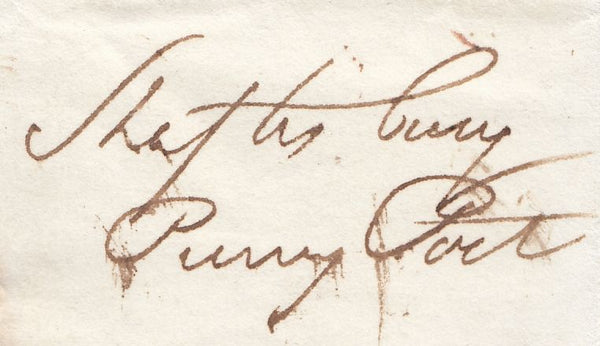 Shaftesbury
Penny Post